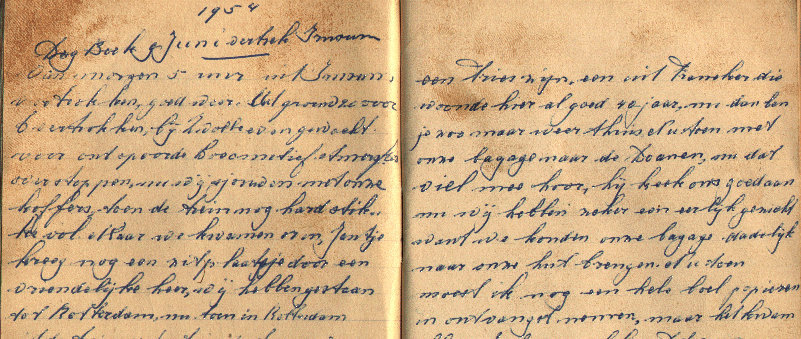 1954
Dag Boek 9 Juni vertrek
morgen 5 uur uit
vertrokken, goed weer. Uit over
6 vertrokken, bij Zwolle even gewacht
voor ontspoorde locomotief,
overstappen, nu wij sjouwden met onze
koffers, toen de trein nog hard stik
ke vol. Maar we kwamen er in, Jantje
kreeg nog een zitplaatsje door een
vriendelijke heer, wij hebben gestaan
tot Rotterdam, nu toen in Rotterdam
een Fries zijn, een uit Franeker die
woonde hier al goed 40 jaar, nu dan ben
je zoo maar weer thuis nu toen met
onze bagage naar de Doanen, nu dat
viel mee hoor, hij keek ons goed aan
nu wij hebben zeker een eerlijk gezicht
want we konden onze bagage dadelijk
naar onze hut brengen. nu toen
moest ik nog een hele boel papieren
in ontvangst nemen, maar het kwam